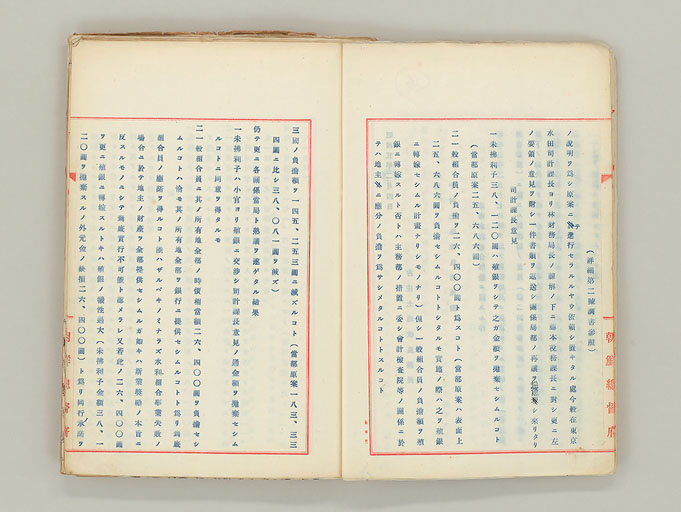 (詳細第二號調書參照)
ノ說明ヲ爲シ原案ニテ進行セラルルヤウ依賴シ置キタル處今般在東京
水田司計課長ヨリ林財務局長ノ諒解ノ下ニ藤本稅務課長ニ對シ更ニ左
ノ要領ノ意見ヲ附シ一件書類ヲ返送シ關係局部ノ再議ヲ シ來リタリ
司計課長意見
一未拂利子三八、一二〇圓ハ殖銀ヲシテ之ガ全額ヲ拋棄セシムルコト
(當部原案二五、六八六圓)
二一般組合員ノ負擔ヲ二六、四〇〇圓ト爲スコト(當部原案ハ表面上
二五、六八六圓ヲ負擔セシムルコトトシタルモ實地ノ際ハ之ヲ殖銀
ニ轉嫁セシムル計畫ナリシモノナリ)但シ一般組合員ノ負擔ヲ殖
銀ニ轉嫁スルト否トハ主務部ノ措置ニ委シ會計檢査院等ノ關係ニ於
テハ地主ニ應分ノ負擔ヲ爲サシメタルコトトスルコト
朝鮮總督府
三國ノ負擔額ヲ一四五、二五三圓ニ減ズルコト(當部原案一八三、三三
四圓ニ比シ三八、〇八一圓ヲ減ズ)
仍テ更ニ各關係當局ト熟議ヲ遂ゲタル結果
一未拂利子ハ小官ヨリ殖銀ニ交涉シ司計課長意見ノ通全額ヲ拋棄セシム
ルコトニ同意ヲ得タルモ
二一般組合員ニ其ノ所有地全部ノ時價相當額二六、四〇〇圓ヲ負擔セシ
ムルコトハ恰モ其ノ所有地全部ヲ銀行ニ提供セシムルコトト爲リ到底
組合員ノ應諾ヲ得ルコト能ハザルベキノミナラズ水利組合事業失敗ノ
場合ニ於テ地主ノ財產ヲ全部提供セシムルガ如キハ產業獎勵ノ本旨ニ
反スルモノニシテ到底實行不可能ト認メラレ又若此ノ二六、四〇〇圓
ヲ更ニ殖銀ニ轉嫁スルトキハ殖銀ノ犧牲過大(未拂利子金額三八、一
二〇圓ヲ拋棄スルノ外元金ノ缺損二六、四〇〇圓)ト爲リ同行承諾ヲ
朝鮮總督府